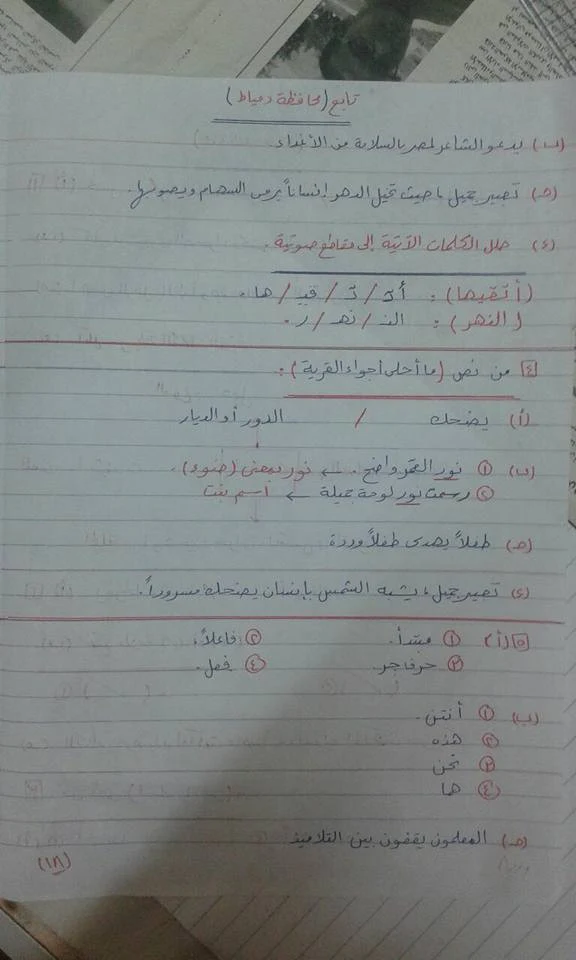 تابع (محافظة دمياط)
(ب) يدعو الشاعر لمصر بالسلامة من الأعداء.
(حـ) تصبير جميل، حيث تخيل الدهر إنساناً يرمى السهام ويصوبها.
(ء) حلل الكلمات الآتية إلى مقاطع صوتية.
(أتقيها): أتـ / ـتـ / قيـ / ها.
(النهر): النـ / نهـ / ر.
٤ من نص (ما أحلى أجواء القرية):
(أ) يضحك / الدور أو الديار
(ب) ١ نور القمر واضح. ← نور بمعنى (ضوء).
٢ رسمت نور لوحة جميلة ← اسم بنت
(حـ) طفلاً يهدى طفلاً وردة
(ء) تصبير جميل، يشبه الشمس بإنسان يضحك مسروراً.
٥ (أ) ١ مبتدأ. ٢ فاعلاً.
٣ حرف جر. ٤ فعل.
(ب) ١ أنتن.
٢ هذه
٣ نحن
٤ هما
(حـ) المعلمون يقفون بين التلاميذ
(١٨)